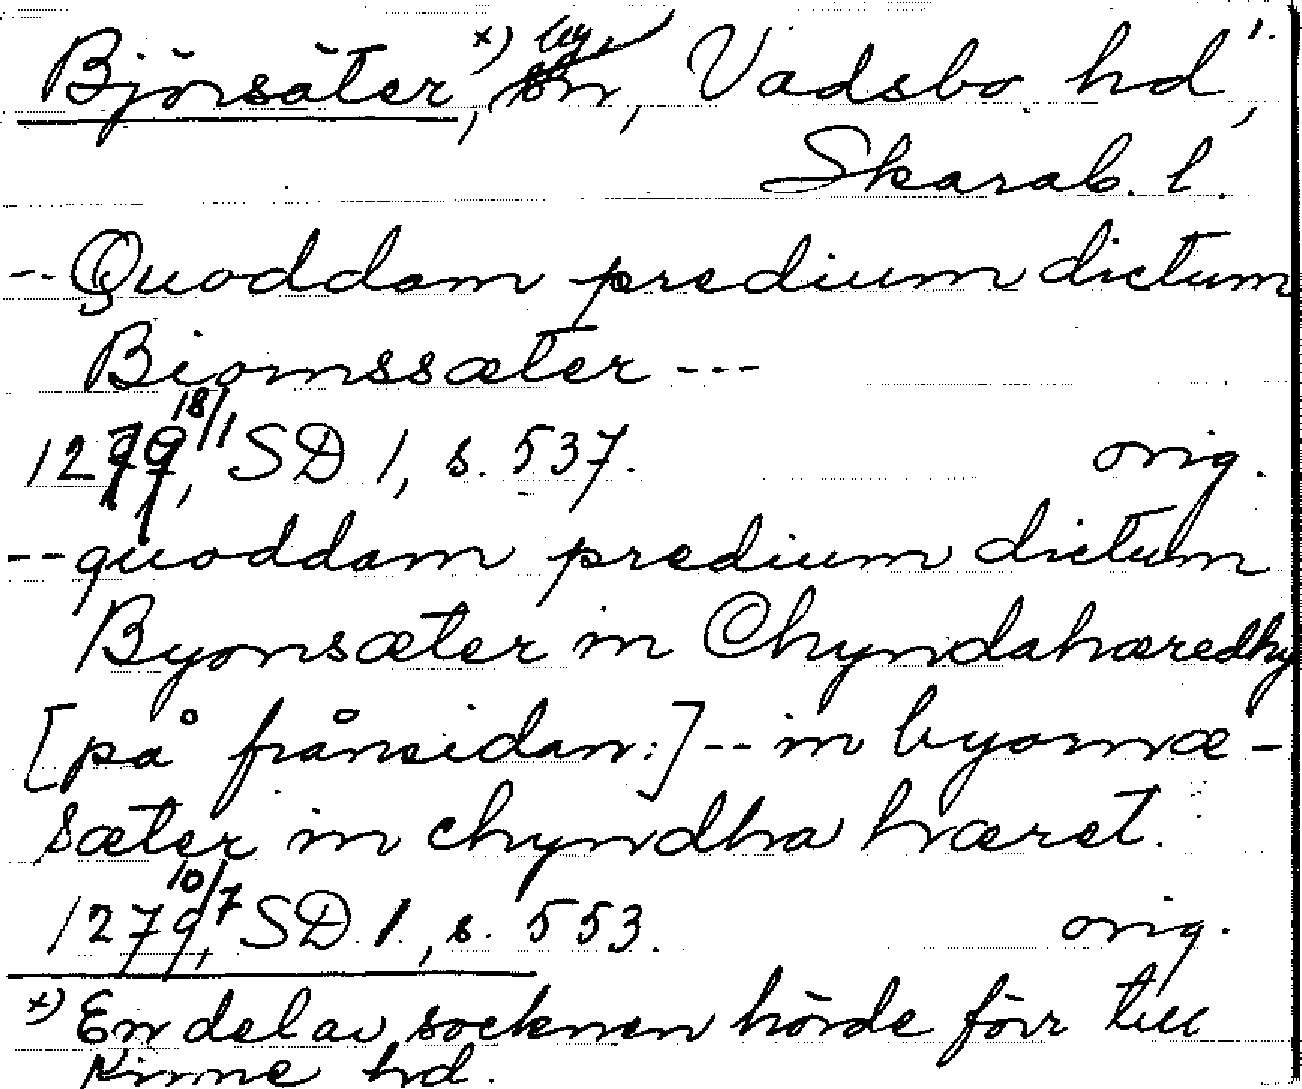 Björsäter,ˣ⁾ sn, Vadsbo hd,
Skarab. l.
--Quoddam predium dictum
Biornssæter ---
18/1
1279, SD 1, s. 537. orig.
--quoddam predium dictum
Byornsæter in Chyndahæredhy
[på frånsidan:]--in byornæ-
sæter in chyndha hæret.
10/7
1279, SD 1, s. 553. orig.
x) En del av socknen hörde förr till
Kinne hd.